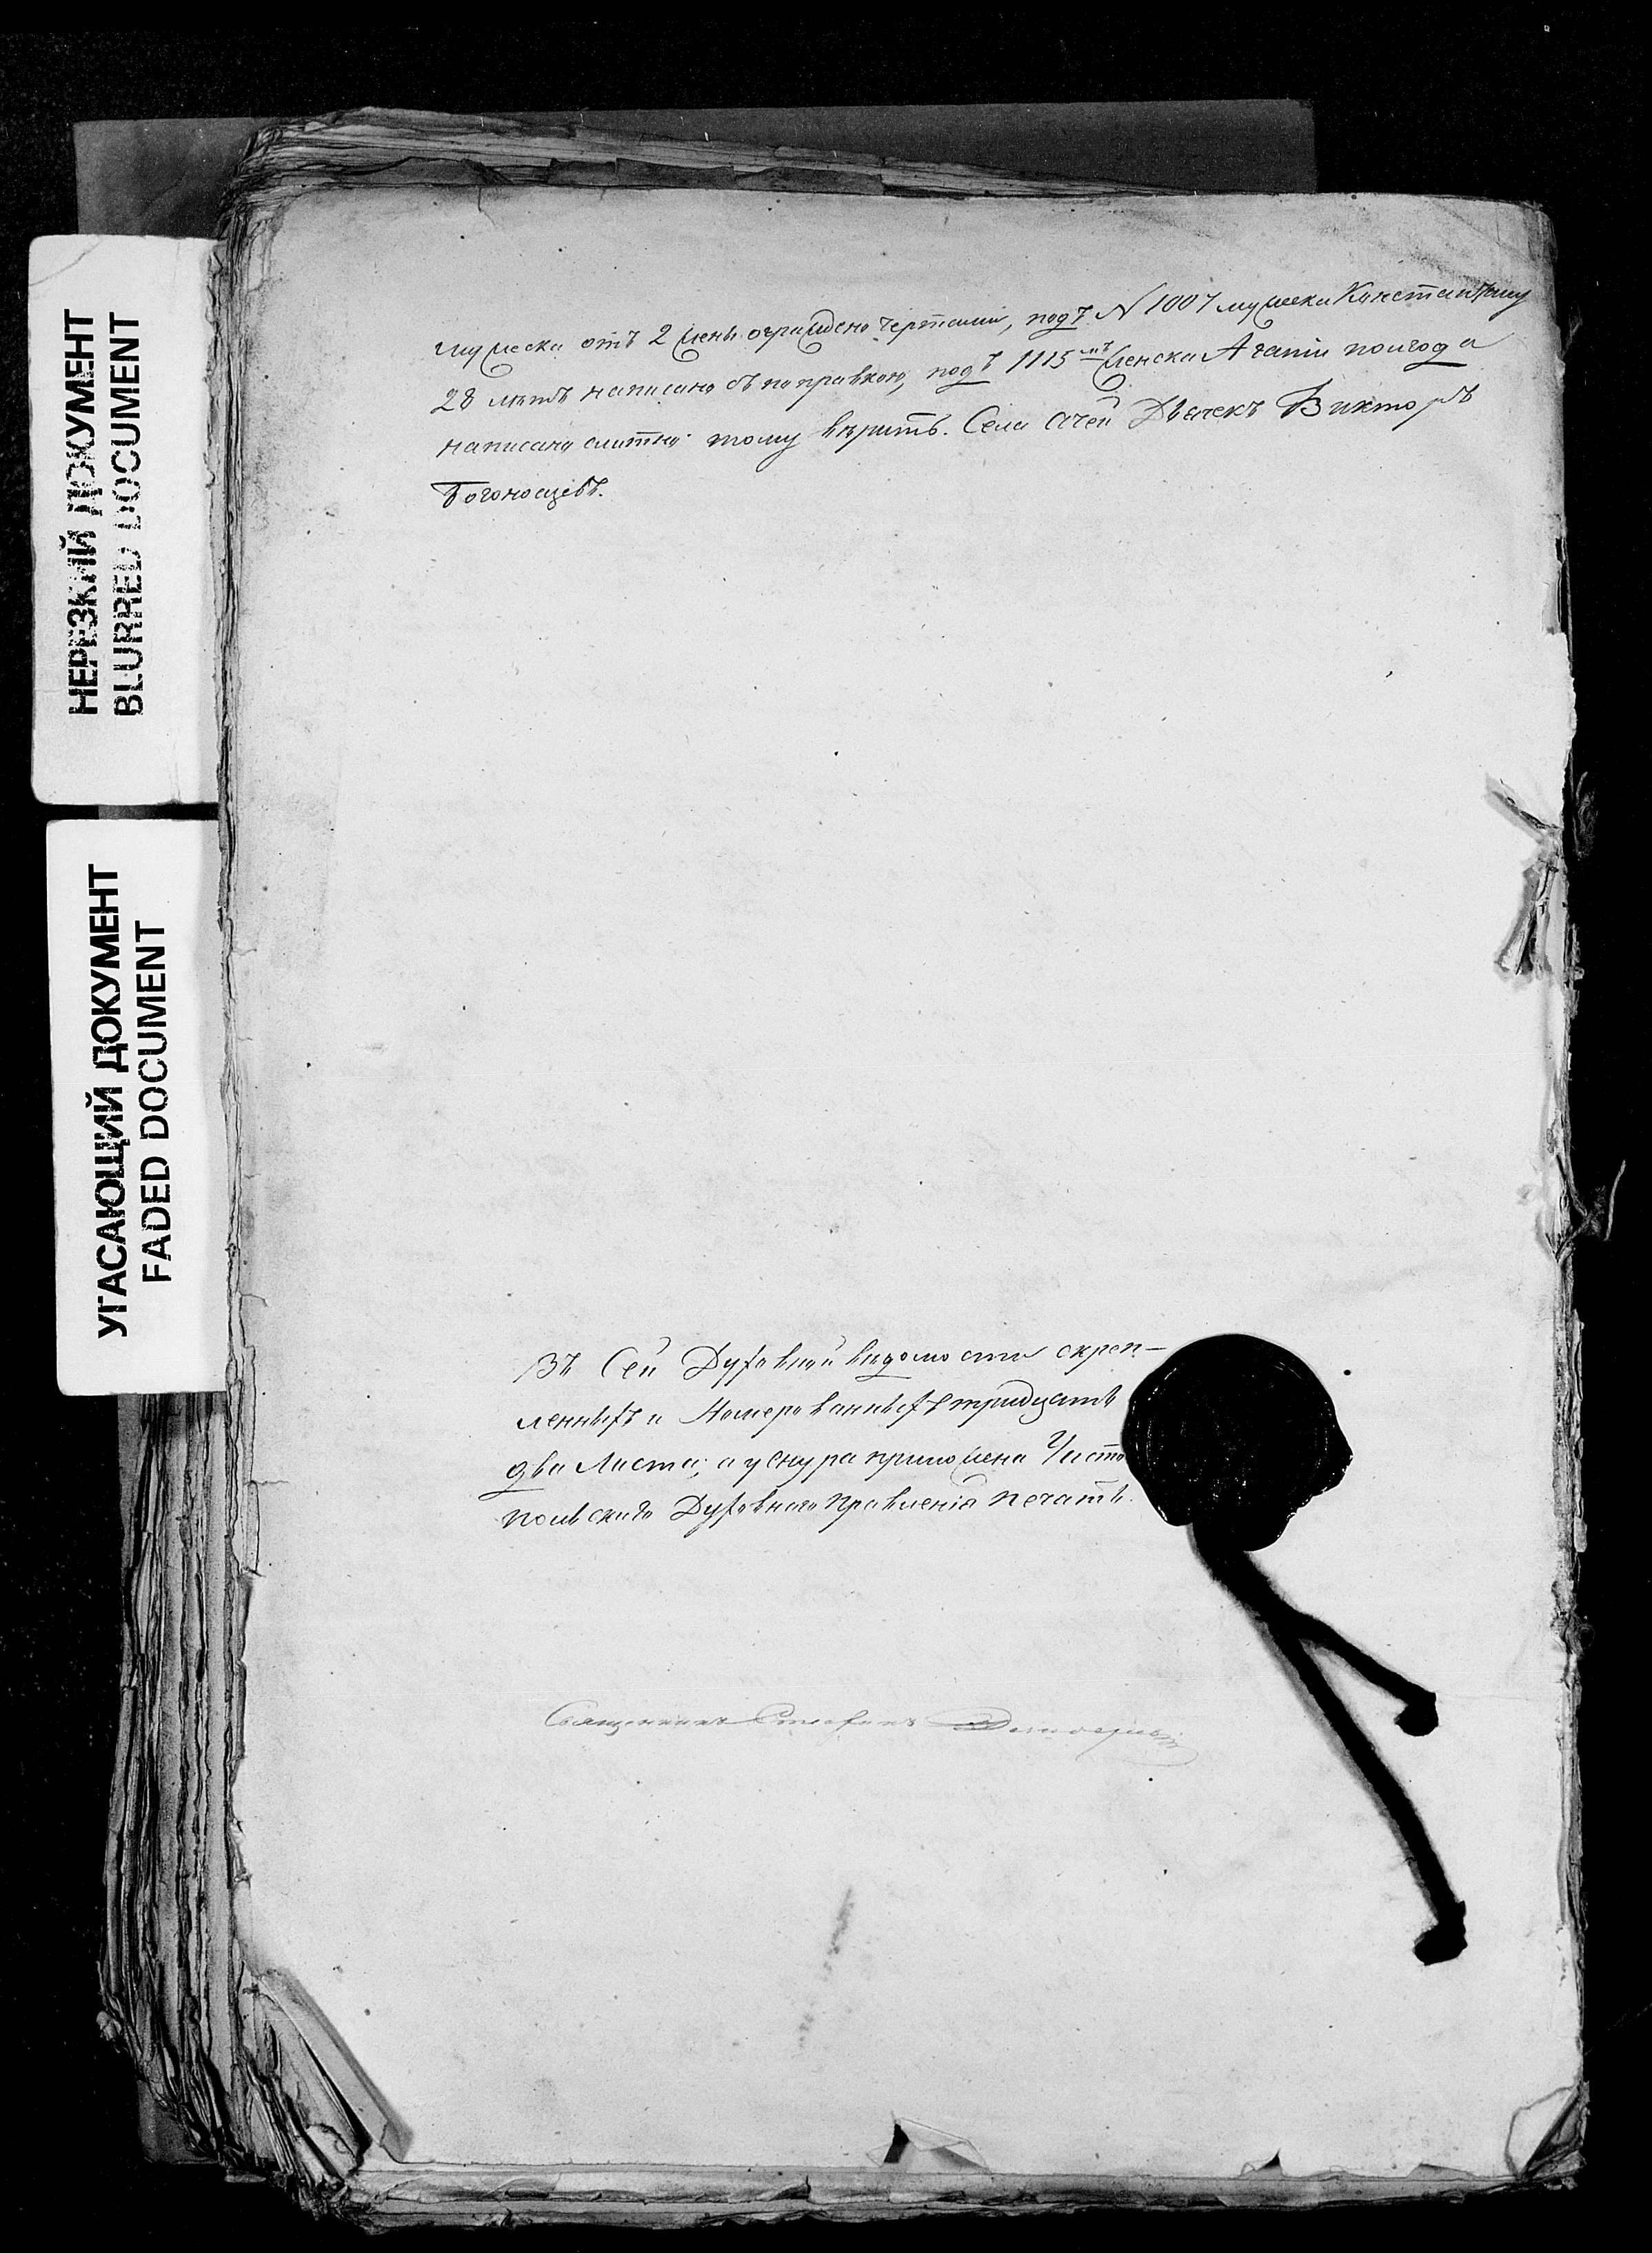 НЕРЕЗКИЙ ДОКУМЕНТ
BLURRED DOCUMENT
УГАСАЮЩИЙ ДОКУМЕНТ
FADED DOCUMENT
мужеска отъ 2 жены ограждено чертами, подъ N 1007 мужеска Константину
28 лѣтъ написано съ поправкою, подъ 1115 мъ женска Агапіи полгода
написано слитно: тому вѣрить. Села Ачей Дьячекъ Викторъ
Богоносцевъ.
Въ Сей Духовной вѣдомости скреп-
ленныхъ и Номерованныхъ тридцать
два Листа; а у Снура приложена Чисто
польскаго Духовнаго Правленія печать.
Священникъ Стефанъ